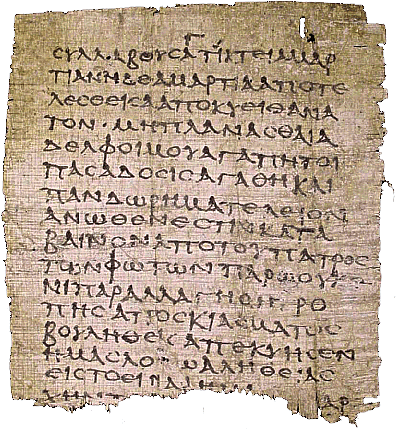 Γ
ϹΥΛΛΑΒΟΥϹΑΤΙΚΤΕΙΑΜΑΡ
ΤΙΑΝΗΔΕΑΜΑΡΤΙΑΑΠΟΤΕ
ΛΕϹΘΕΙϹΑΑΠΟΚΥΕΙΘΑΝΑ
ΤΟΝ·ΜΗΠΛΑΝΑϹΘΑΙΑ
ΔΕΛΦΟΙΜΟΥΑΓΑΠΗΤΟΙ
ΠΑϹΑΔΟϹΙϹΑΓΑΘΗΚΑΙ
ΠΑΝΔΩΡΗΜΑΤΕΛΕΙΟΝ
ΑΝΩΘΕΝΕϹΤΙΝΚΑΤΑ
ΒΑΙΝΟΝΑΠΟΤΟΥΠΑΤΡΟϹ
ΤΩΝΦΩΤΩΝΠΑΡΩΟΥΚΕ
ΝΙΠΑΡΑΛΛΑΓΗΟΗΤΡΟ
ΠΗϹΑΠΟϹΚΙΑϹΜΑΤΟϹ
ΒΟΥΛΗΘΕΙϹΑΠΕΚΥΗϹΕΝ
ΗΜΑϹΛΟΓΩΑΛΗΘΕΙΑϹ
ΕΙϹΤΟΕΙΝΑΙΗΜ